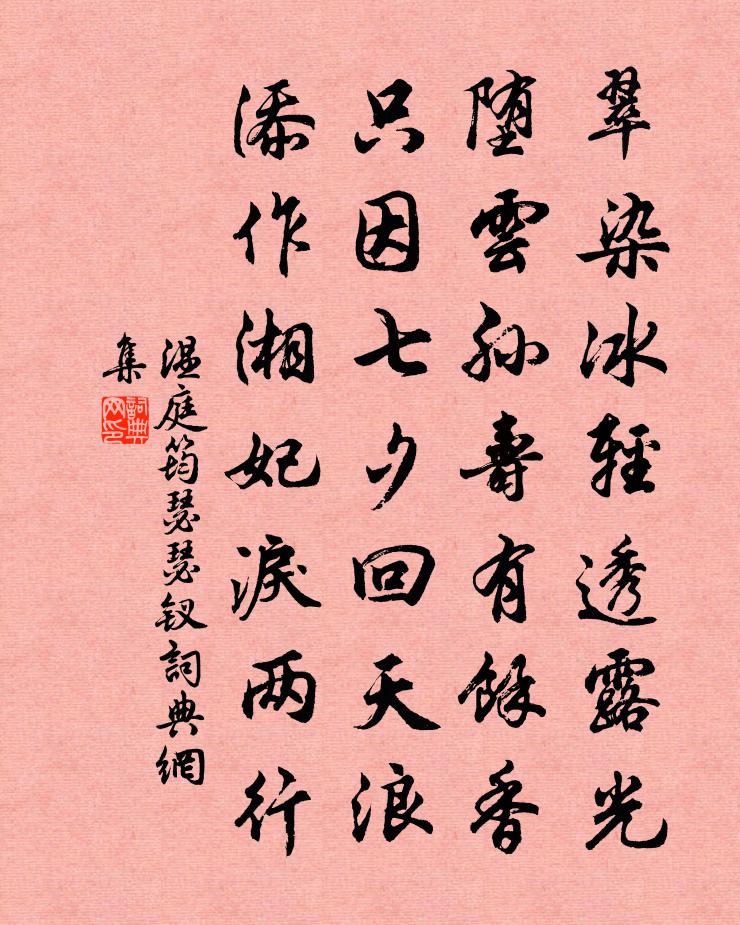 翠染冰輕透露光
堕雲孙壽有餘香
只因七夕回天浪
添作湘妃淚两行
温庭筠瑟瑟钗詞典網
集
詞典網印